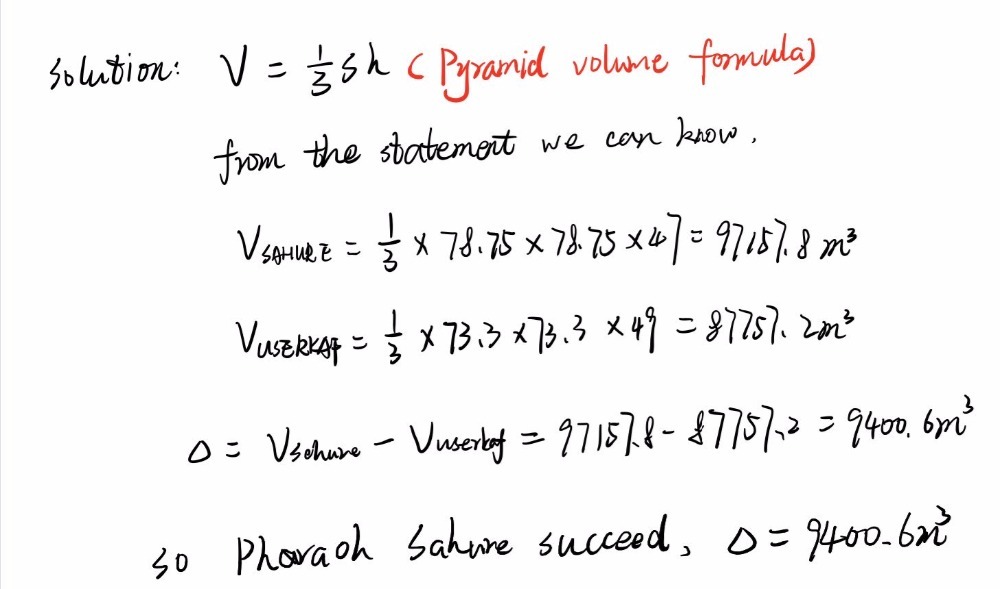 solution: V = 1/3 sh ( Pyramid volume formula)
from the statement we can know.
V SAHURE = 1/3 × 78.75 × 78.75 × 47 = 97157.8 m³
V USERKAF = 1/3 × 73.3 × 73.3 × 49 = 87757.2m³
Δ = V Sahure - V userkaf = 97157.8 - 87757.2 = 9400.6m³
so Pharaoh Sahure succeed, Δ = 9400.6m³